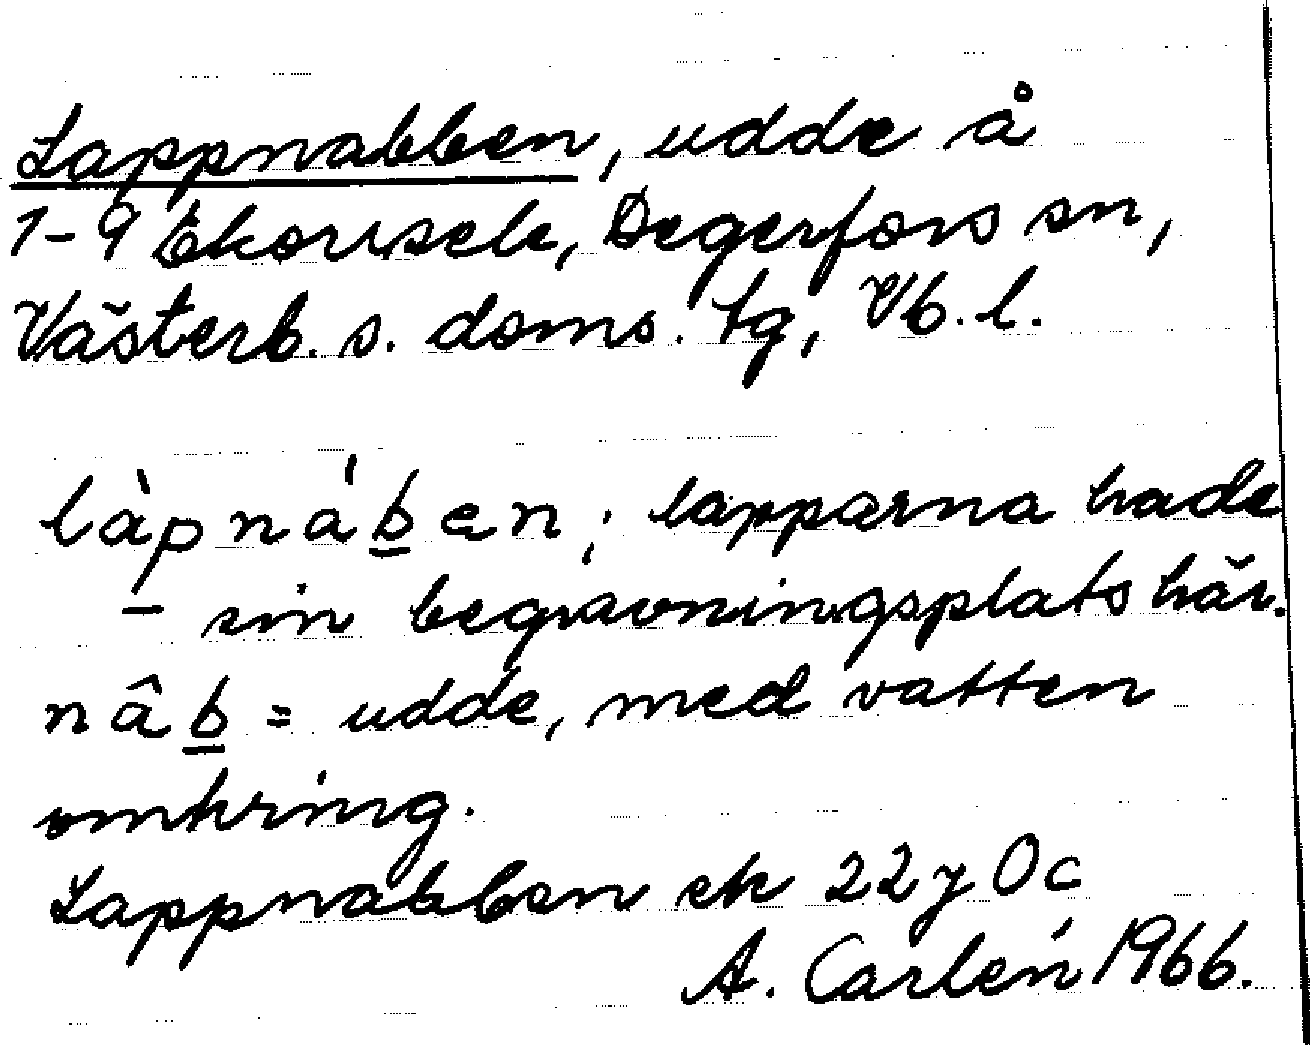 Lappnabben, udde å
1-9 Ekorrsele, Degerfors sn,
Västerb. s. doms. tg, Vb. l.
làpnáben; lapparna hade
sin begravningsplats här.
nâb = udde, med vatten
omkring.
Lappnabben ek 22y0c
A. Carlén 1966.